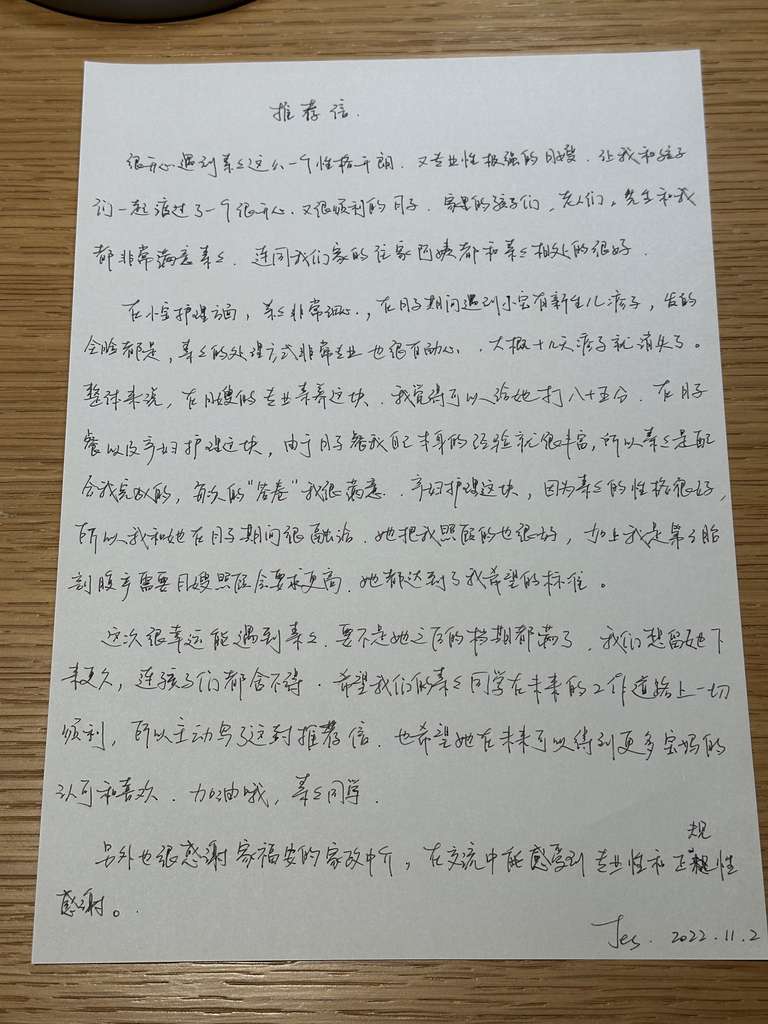 推荐信.
很开心遇到秦么这么一个性格开朗.又专业性极强的月嫂.让我和孩子
们一起渡过了一个很开心.又很顺利的月子.家里的孩子们,老人们,先生和我
都非常满意秦么.连同我们家的住家阿姨都和秦么相处的很好.
在小宝护理方面,秦么非常细心,在月子期间遇到小宝有新生儿痱子,发的
全脸都是,秦么的处理方式非常专业也很有耐心.大概十几天痱子就消失了。
整体来说,在月嫂的专业素养这块.我觉得可以给她打八十五分.在月子
餐以及产妇护理这块,由于月子餐我自己本身的经验就很丰富,所以秦么是配
合我完成的,每次的"答卷"我很满意.产妇护理这块,因为秦么的性格很好,
所以我和她在月子期间很融洽.她把我照顾的也很好,加上我是第3胎
剖腹产需要月嫂照顾会要求更高.她都达到了我希望的标准。
这次很幸运能遇到秦么.要不是她之后的档期都满了.我们想留她下
来更久,连孩子们都舍不得.希望我们的秦么同学在未来的工作道路上一切
顺利,所以主动写了这封推荐信.也希望她在未来可以得到更多宝妈的
认可和喜欢.加油哦,秦么同学.
另外也很感谢家福安的家政中介,在交流中能感受到专业性和正规性
感谢。
Jes. 2022.11.2